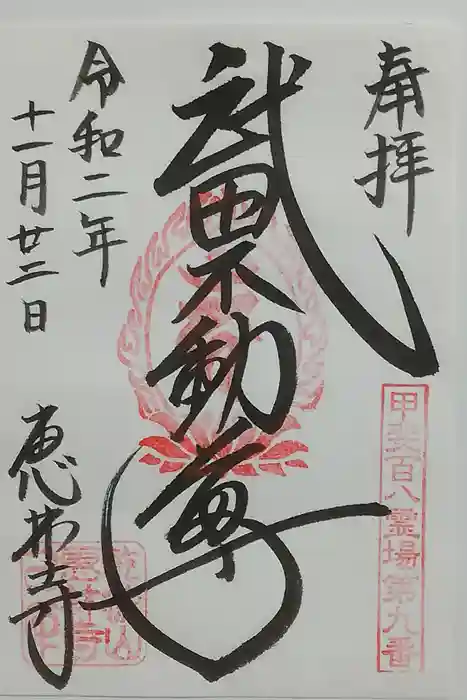 奉拝
甲斐百八霊場第九番
武田不動尊
令和二年
十一月廿三日
恵林寺